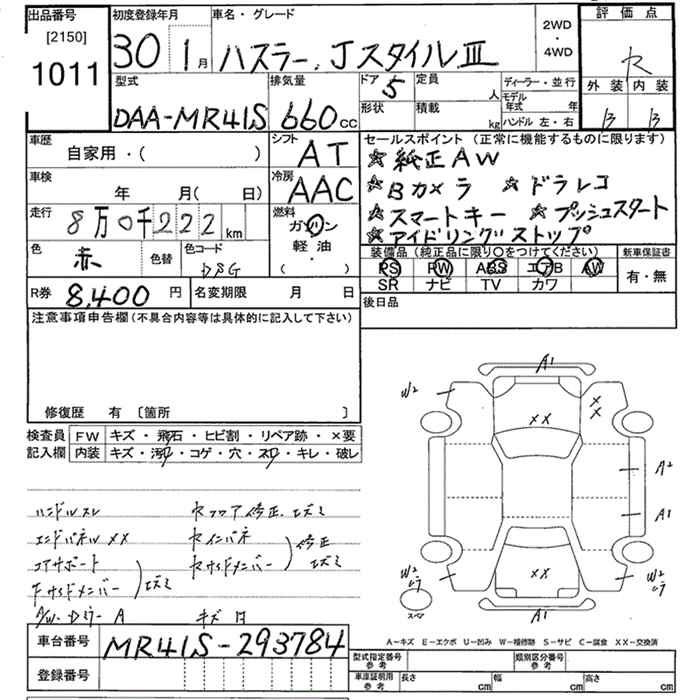 出品番号 初度登録年月 車名・グレード 評価点
[2150]
1011
30 1月 ハスラー、JスタイルⅢ
2WD
・
4WD
セ
外装 内装
B B
型式 排気量 ドア 定員 人 ディーラー・並行
DAA-MR41S 660cc 5
形状 積載 kg モデル年式 年
ハンドル 左・右
車歴 自家用・( )
シフト AT
車検 年 月( 日)
冷房 AAC
走行 8万0千222km
燃料 ガソリン
軽油・
・( )
色 赤 色替 色コード
R券 8,400円 名変期限 月 日
セールスポイント(正常に機能するものに限ります)
☆純正AW
☆Bカメラ ☆ドラレコ
☆スマートキー ☆プッシュスタート
☆アイドリングストップ
装備品(純正品に限り○をつけてください) 新車保証書
PS PW ABS エアB AW 有・無
SR ナビ TV カワ
後日品
注意事項申告欄(不具合内容等は具体的に記入して下さい)
修復歴 有 〔箇所 〕
検査員 FW キズ・飛石・ヒビ割・リペア跡・×要
記入欄 内装 キズ・汚れ・コゲ・穴・スレ・キレ・破レ
ハンドルスレ
エンドパネル XX
コアサポート
Fサイドメンバー
エズミ
セフロア修正、エズミ
セインパネ
セサイドメンバー
修正
エズミ
A
キズ
A1
W2
XX
XX
A2
A1
W2
XX
W2
A1
スペア
A-キズ E-エクボ U-凹み W-補修跡 S-サビ C-腐食 XX-交換済
車台番号 MR41S-293784
登録番号
型式指定番号 参考 類別区分番号 参考
車庫証明用 参考 長さ cm 幅 cm 高さ cm